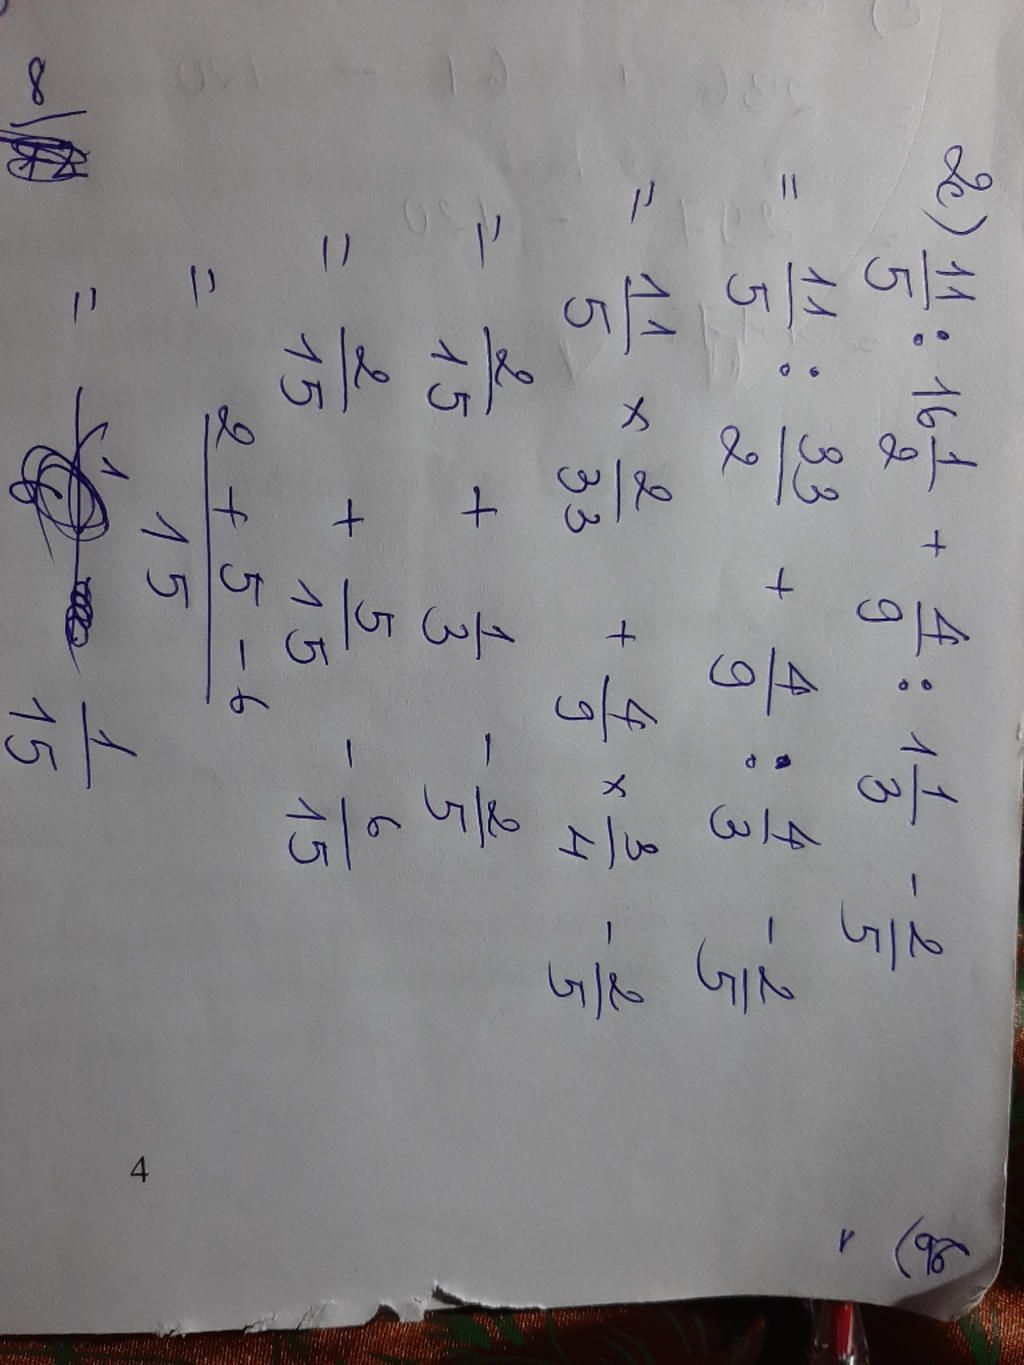 2c) 11/5 : 16 1/2 + 4/9 : 1 1/3 - 2/5
= 11/5 : 33/2 + 4/9 : 4/3 - 2/5
= 11/5 × 2/33 + 4/9 × 3/4 - 2/5
= 2/15 + 1/3 - 2/5
= 2/15 + 5/15 - 6/15
= 2 + 5 - 6 / 15
= 1/15
4